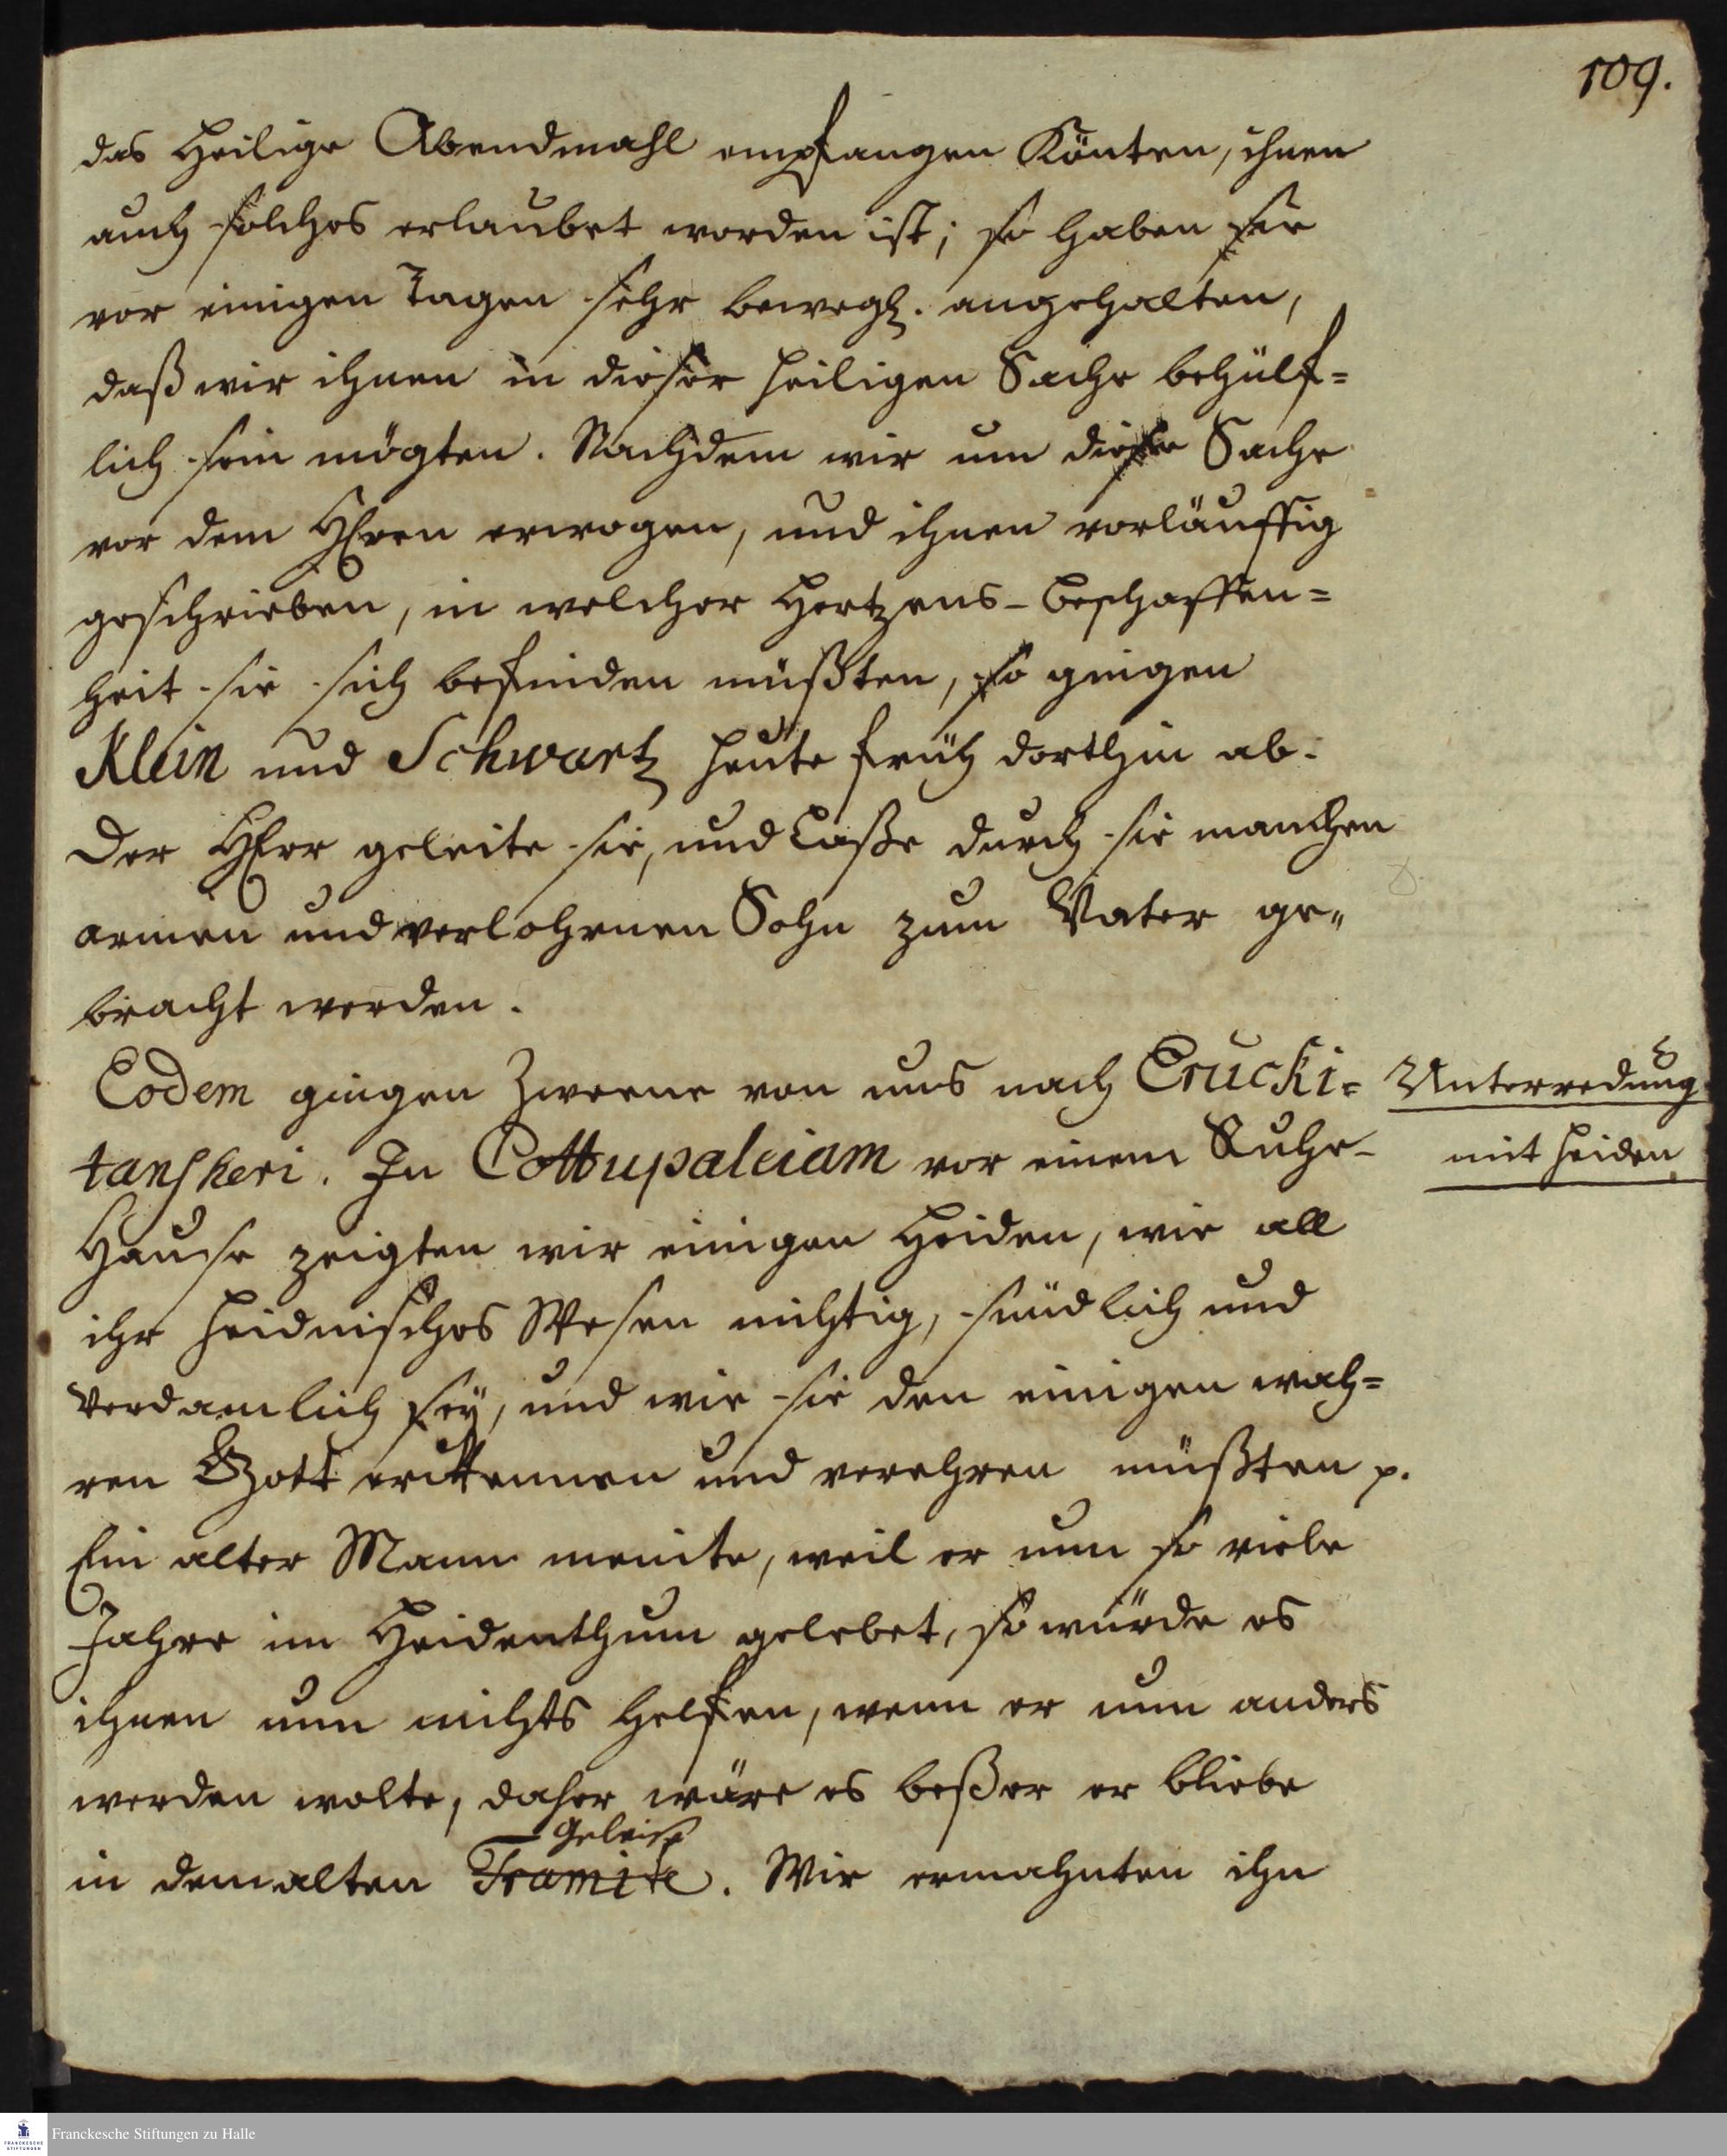 109.
das Heilige Abendmahl empfangen könten, ihnen
auch solches erlaubet worden ist; so haben sie
vor einigen Tagen sehr bewegl. angehalten,
daß wir ihnen in dieser heiligen Sache behülf=
lich sein mögten. Nachdem wir nun diese Sache
vor dem HErrn erwogen, und ihnen vorläuffig
geschrieben, in welcher Hertzens-Beschaffen=
heit sie sich befinden müßten, so gingen
Klein und Schwartz heute früh dorthin ab.
Der HErr geleite sie, und laße durch sie manchen
armen und verlohrnen Sohn zum Vater ge„
bracht werden.
Eodem gingen Zweene von uns nach Erucki=
tanscheri. In Cottupaleiam vor einem Ruhe-
Hause zeigten wir einigen Heiden, wie all
ihr heidnisches Wesen nichtig, sündlich und
verdamlich sey, und wie sie den einigen wah=
ren Gott erkennen und verehren müßten p.
Ein alter Mann meinte, weil er nun so viele
Jahre im Heidenthum gelebet, so würde es
ihnen nun nichts helfen, wenn er nun anders
werden wolte, daher wäre es beßer er bliebe
Geleise
in dem alten Tramite. Wir ermahnten ihn
Unterredung
mit Heiden
Franckesche Stiftungen zu Halle
FRANCKESCHE
STIFTUNGEN